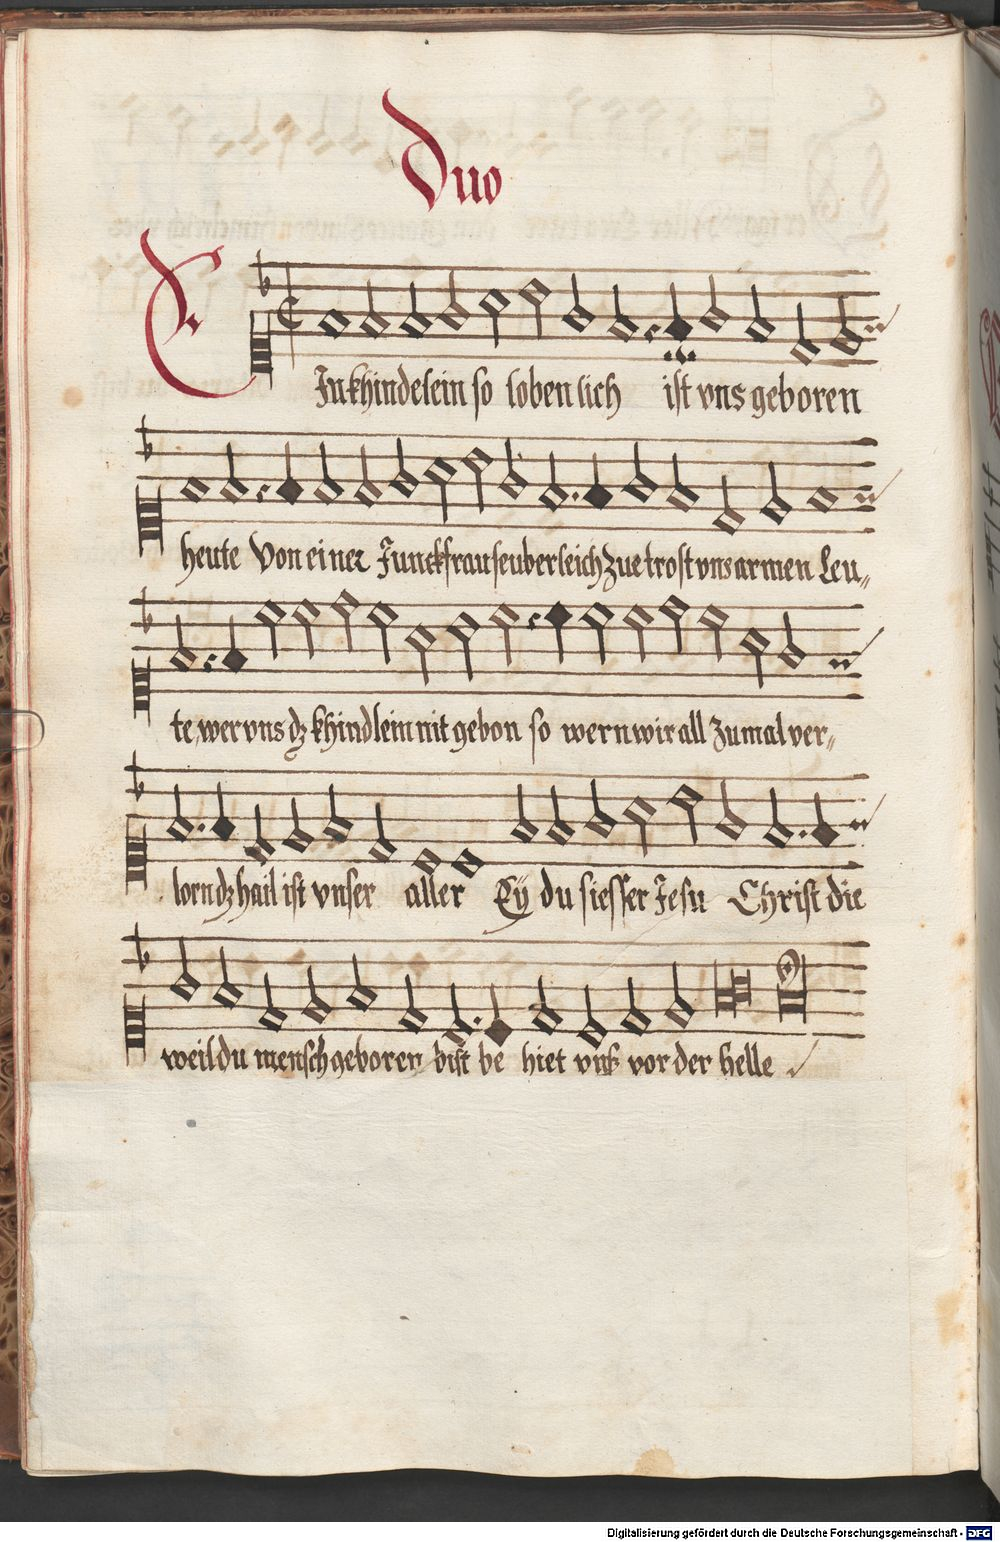 Duo
EInkhindelein so loben lich ist vns geboren
heute Von einer Junckfrau seuberleich zue trost vns armen Leu„
te, wer vns dz khindlein nit gebon so wern wir all zumal ver„
lorn dz hail ist vnser aller Eÿ du siesser Jesu Christ die
weil du mensch geboren bist be hiet vnß vor der helle
Digitalisierung gefördert durch die Deutsche Forschungsgemeinschaft - DFG